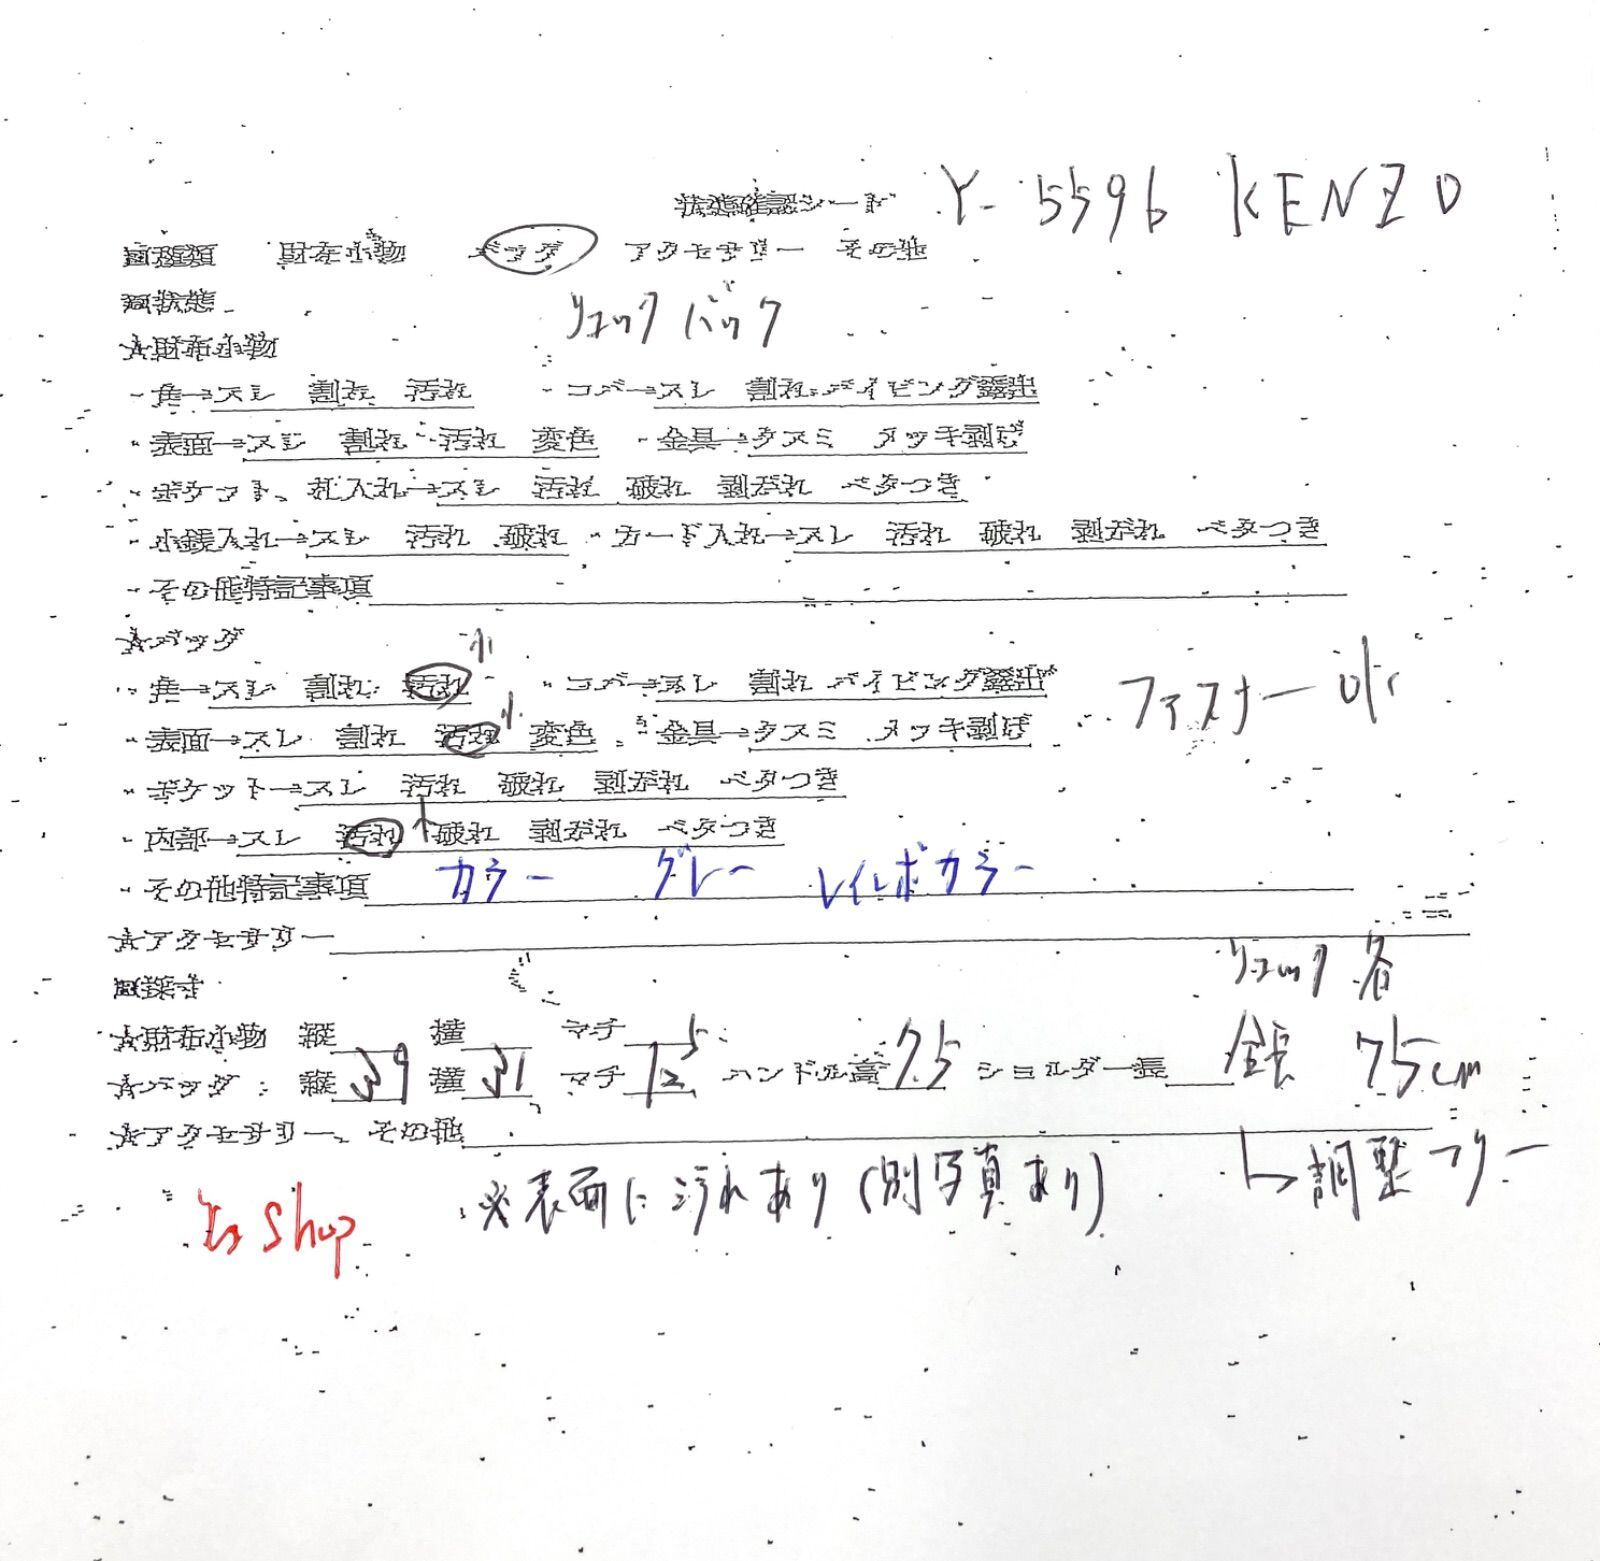 状態確認シート Y-5596 KENZO
■種類 財布小物 バッグ アクセサリー その他
■状態
リュックバック
☆財布小物
・角→スレ 割れ 汚れ ・コバ→スレ 割れ パイピング露出
・表面→スレ 割れ 汚れ 変色 ・金具→クスミ メッキ剥げ
・ポケット、札入れ→スレ 汚れ 破れ 剥がれ ベタつき
・小銭入れ→スレ 汚れ 破れ ・カード入れ→スレ 汚れ 破れ 剥がれ ベタつき
・その他特記事項
☆バッグ
小
・角→スレ 割れ 汚れ ・コバ→スレ 割れ パイピング露出
小
・表面→スレ 割れ 汚れ 変色 ・金具→クスミ メッキ剥げ ファスナー ok
・ポケット→スレ 汚れ 破れ 剥がれ ベタつき
・内部→スレ 汚れ 小 破れ 剥がれ ベタつき
・その他特記事項 カラー グレー レインボカラー
☆アクセサリー
リュック 各
■採寸
☆財布小物 縦 横 マチ
☆バッグ:縦 39 横 31 マチ 12.5 ハンドル高 7.5 ショルダー長 全長 75cm
☆アクセサリー、その他
↳調整フリー
※表面に汚れあり(別写真あり)
Shop